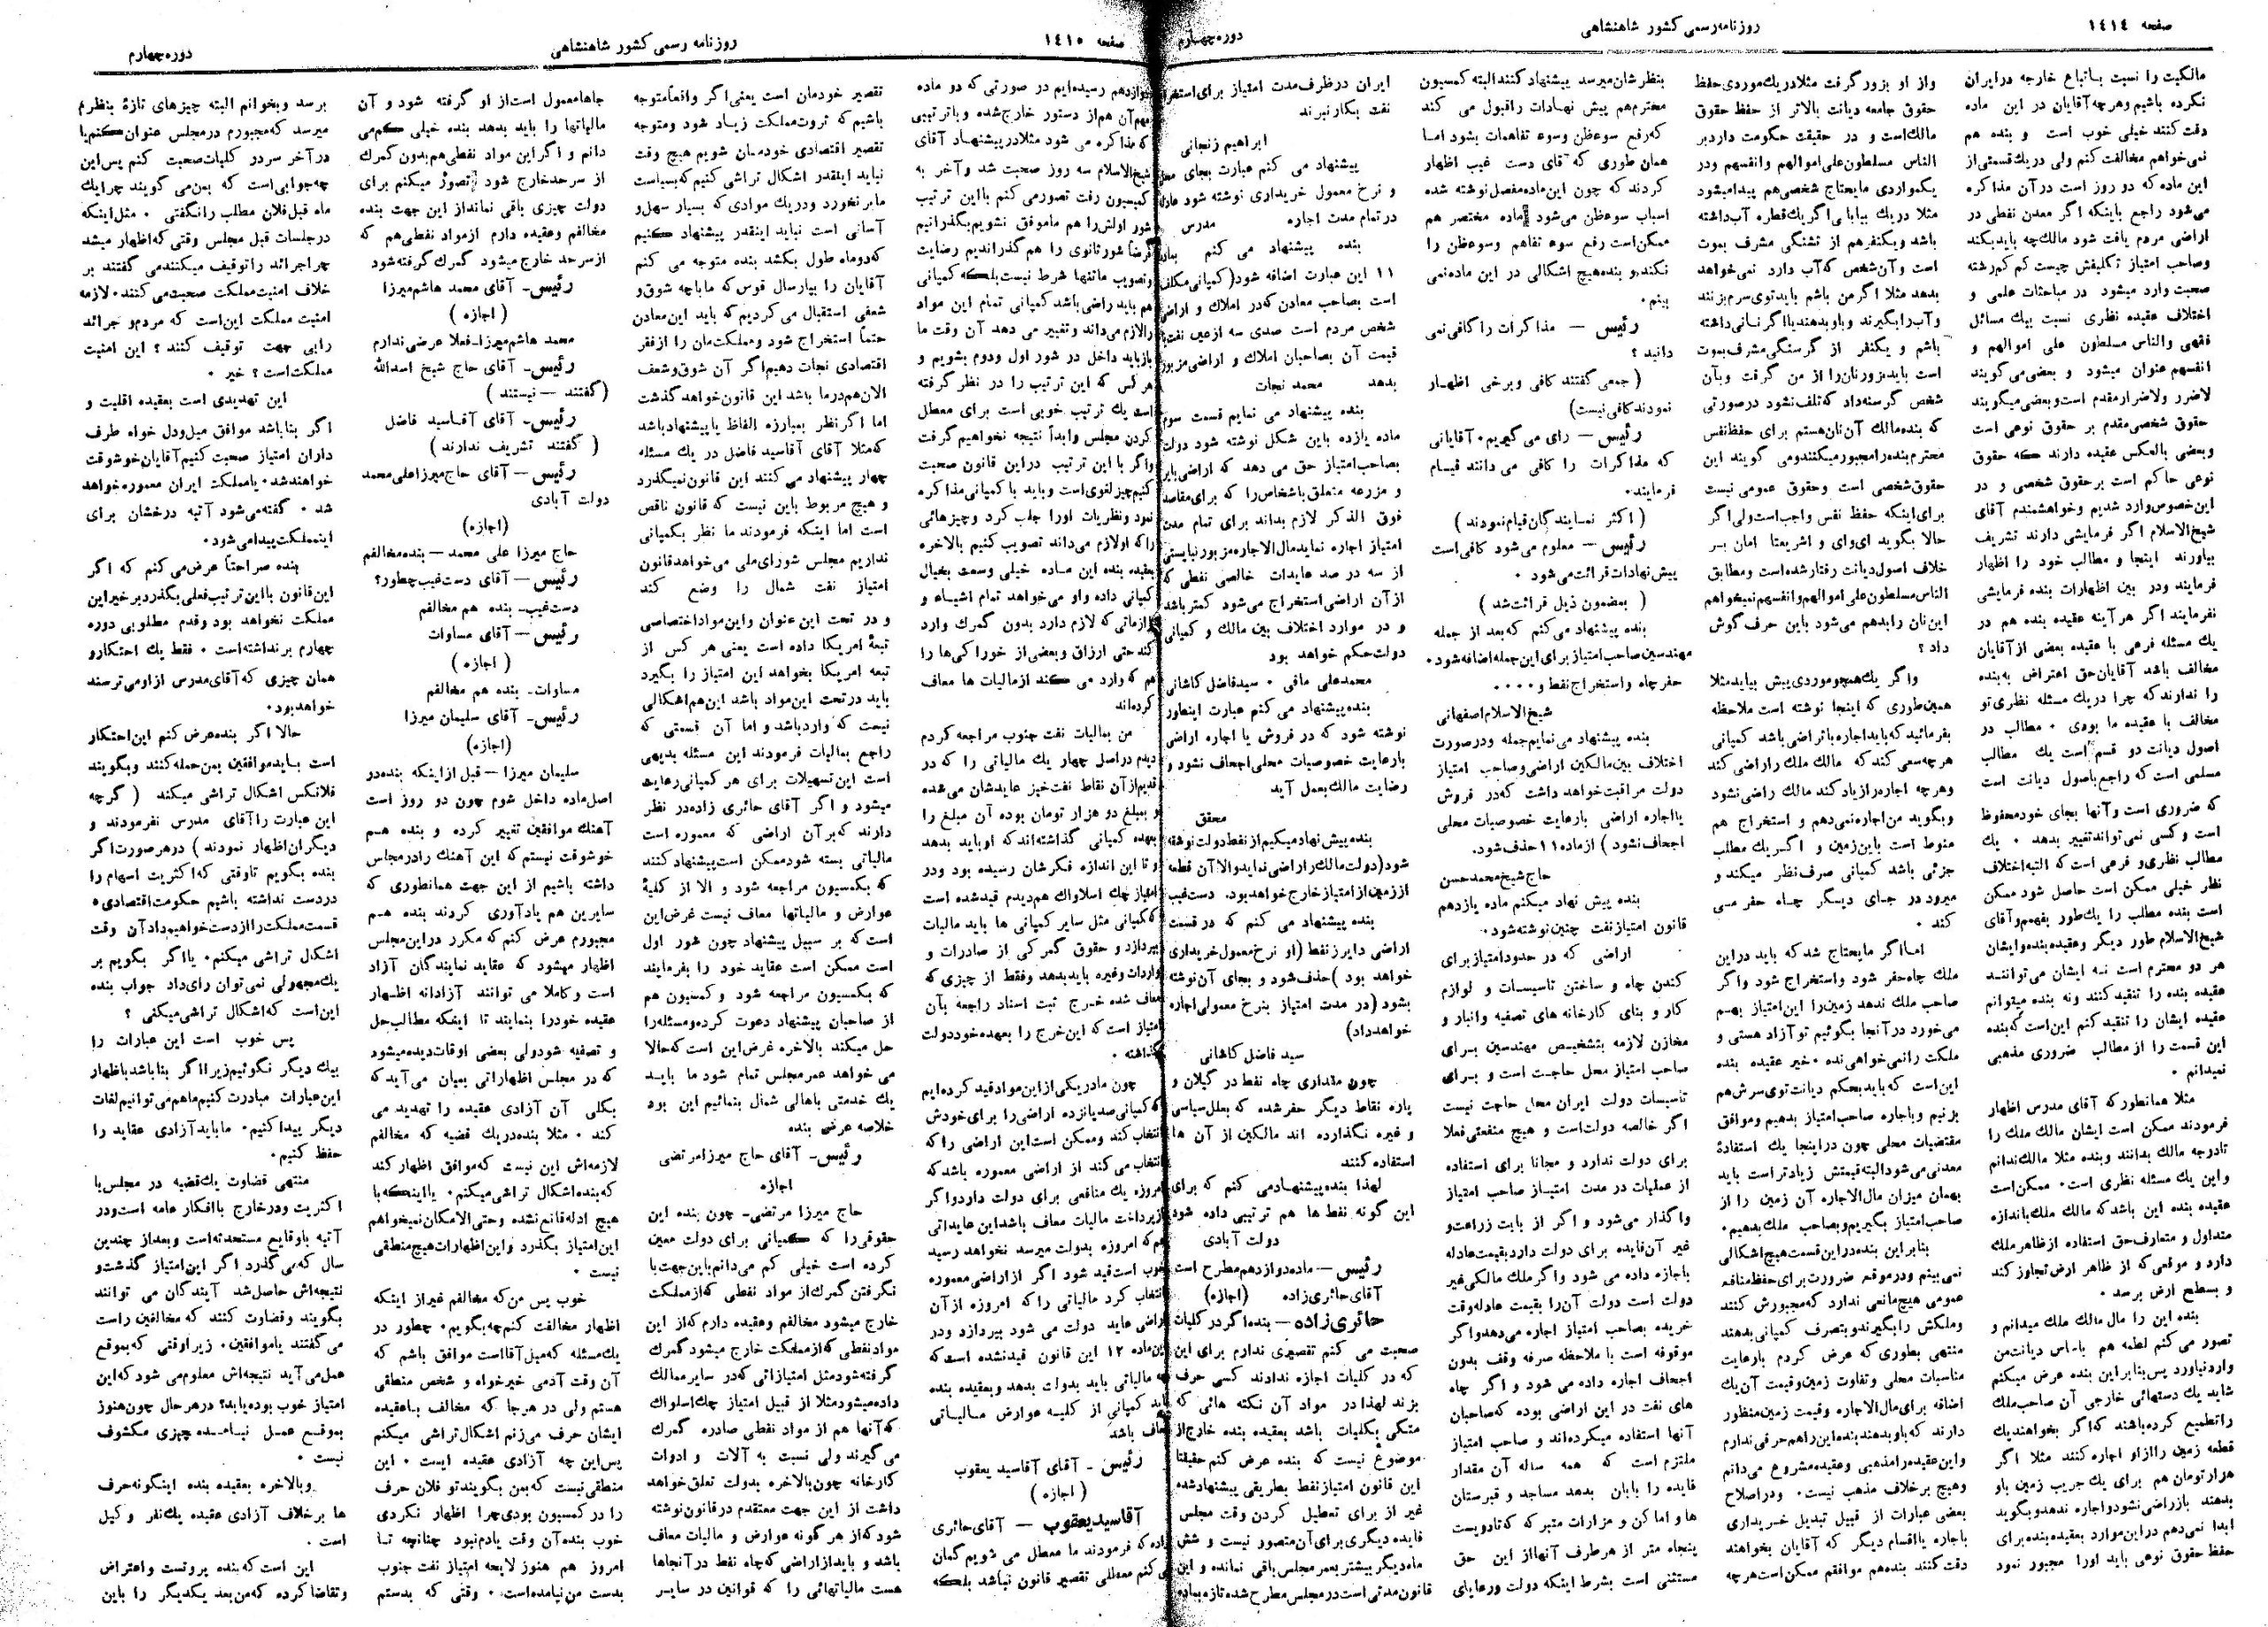 صفحه ١٤١٤
روزنامه رسمی کشور شاهنشاهی
دوره چهارم
مالکیت را نسبت باتباع خارجه در ایران
نکرده باشیم و هرچه آقایان در این ماده
دقت کنند خیلی خوب است و بنده هم
نمی‌خواهم مخالفت کنم ولی در یك قسمتی از
این ماده که دو روز است در آن مذاکره
می‌شود راجع باینکه اگر معدن نفطی در
اراضی مردم یافت شود مالك چه باید بکند
و صاحب امتیاز تکلیفش چیست کم کم رشته
صحبت وارد میشود در مباحثات علمی و
اختلاف عقیده نظری نسبت بیك مسائل
فقهی والناس مسلطون علی اموالهم و
انفسهم عنوان میشود و بعضی می‌گویند
لاضرر ولاضرار مقدم است و بعضی میگویند
حقوق شخصی مقدم بر حقوق نوعی است
و بعضی بالعکس عقیده دارند که حقوق
نوعی حاکم است بر حقوق شخصی و در
این خصوص وارد شدیم و خواهشمندم آقای
شیخ الاسلام اگر فرمایشی دارند تشریف
بیاورند اینجا و مطالب خود را اظهار
فرمایند و در بین اظهارات بنده فرمایشی
نفرمایند اگر هر آینه عقیده بنده هم در
یك مسئله فرعی با عقیده بعضی از آقایان
مخالف باشد آقایان حق اعتراض به بنده
را ندارند که چرا در یك مسئله نظری تو
مخالف با عقیده ما بودی ۰ مطالب در
اصول دیانت دو قسم است یك مطالب
مسلمی است که راجع باصول دیانت است
که ضروری است و آنها بجای خود محفوظ
است و کسی نمی‌تواند تغییر بدهد ۰ یك
مطالب نظری و فرعی است که البته اختلاف
نظر خیلی ممکن است حاصل شود ممکن
است بنده مطلب را یك طور بفهمم و آقای
شیخ الاسلام طور دیگر و عقیده بنده و ایشان
هر دو محترم است نه ایشان می‌توانند
عقیده بنده را تنقید کنند و نه بنده میتوانم
عقیده ایشان را تنقید کنم این است که بنده
این قسمت را از مطالب ضروری مذهبی
نمیدانم ۰
مثلا همانطور که آقای مدرس اظهار
فرمودند ممکن است ایشان مالك ملك را
تا درجه مالك بدانند و بنده مثلا مالك ندانم
و این یك مسئله نظری است ۰ ممکن است
عقیده بنده این باشد که مالك ملك باندازه
متداول و متعارف حق استفاده از ظاهر ملك
دارد و موقعی که از ظاهر ارض تجاوز کند
و بسطح ارض برسد ۰
بنده این را مال مالك ملك میدانم و
تصور می‌کنم لطمه هم باساس دیانت من
وارد نیاورد پس بنابر این بنده عرض میکنم
شاید یك دستهائی خارجی آن صاحب ملك
را تطمیع کرده باشند که اگر بخواهند یك
قطعه زمین را از او اجاره کنند مثلا اگر
هزار تومان هم برای یك جریب زمین باو
بدهند باز راضی نشود و اجاره ندهد و بگوید
ابدا نمی‌دهم در این موارد بعقیده بنده برای
حفظ حقوق نوعی باید اورا مجبور نمود
و از او بزور گرفت مثلا در یك موردی حفظ
حقوق جامعه دیانت بالاتر از حفظ حقوق
مالك است و در حقیقت حکومت دارد بر
الناس مسلطون علی اموالهم و انفسهم و در
یکمواردی ما یحتاج شخصی هم پیدا میشود
مثلا در یك بیابانی اگر یك قطره آب داشته
باشد و یکنفر هم از تشنگی مشرف بموت
است و آن شخص که آب دارد نمی‌خواهد
بدهد مثلا اگر من باشم باید توی سرم بزنند
و آب را بگیرند و باو بدهند یا اگر نانی داشته
باشم و یکنفر از گرسنگی مشرف بموت
است باید بزور نان را از من گرفت و بآن
شخص گرسنه داد که تلف نشود در صورتی
که بنده مالك آن نان هستم برای حفظ نفس
محترم بنده را مجبور میکنند و می گویند این
حقوق شخصی است و حقوق عمومی نیست
برای اینکه حفظ نفس واجب است ولی اگر
حالا بگوید ای وای و اشریعتا امان بر
خلاف اصول دیانت رفتار شده است و مطابق
الناس مسلطون علی اموالهم و انفسهم نمیخواهم
این نان را بدهم می‌شود باین حرف گوش
داد ؟
و اگر یك همچو موردی پیش بیاید مثلا
همین طوری که اینجا نوشته است ملاحظه
بفرمائید که باید اجاره با تراضی باشد کمپانی
هرچه سعی کند که مالك ملك را راضی کند
و هرچه اجاره را زیاد کند مالك راضی نشود
و بگوید من اجاره نمی‌دهم و استخراج هم
منوط است باین زمین و اگر یك مطلب
جزئی باشد کمپانی صرف نظر میکند و
میرود در جای دیگر چاه حفر می
کند ۰
اما اگر ما یحتاج شد که باید در این
ملك چاه حفر شود و استخراج شود و اگر
صاحب ملك ندهد زمین را این امتیاز بهم
می‌خورد در آنجا بگوئیم تو آزاد هستی و
ملکت را نمی‌خواهی نده ۰ خیر عقیده بنده
این است که باید بحکم دیانت توی سرش هم
بزنیم و باجاره صاحب امتیاز بدهیم و موافق
مقتضیات محلی چون در اینجا یك استفادهٔ
معدنی می‌شود البته قیمتش زیادتر است باید
بهمان میزان مال الاجاره آن زمین را از
صاحب امتیاز بگیریم و بصاحب ملك بدهیم ۰
بنابر این بنده در این قسمت هیچ اشکالی
نمی‌بینم و در موقع ضرورت برای حفظ منافع
عمومی هیچ مانعی ندارد که مجبورش کنند
و ملکش را بگیرند و بتصرف کمپانی بدهند
منتهی بطوری که عرض کردم با رعایت
مناسبات محلی و تفاوت زمین و قیمت آن یك
اضافه برای مال الاجاره و قیمت زمین منظور
دارند که باو بدهند بنده این را هم حرفی ندارم
و این عقیده را مذهبی و عقیده مشروع می‌دانم
و هیچ بر خلاف مذهب نیست ۰ و در اصلاح
بعضی عبارات از قبیل تبدیل خریداری
باجاره یا اقسام دیگر که آقایان بخواهند
دقت کنند بنده هم موافقم ممکن است هرچه
بنظرشان میرسد پیشنهاد کنند البته کمسیون
محترم هم پیش نهادات را قبول می کند
که رفع سوء ظن و سوء تفاهمات بشود اما
همان طوری که آقای دست غیب اظهار
کردند که چون این ماده مفصل نوشته شده
اسباب سوء ظن می‌شود ماده مختصر هم
ممکن است رفع سوء تفاهم و سوء ظن را
نکند و بنده هیچ اشکالی در این ماده نمی
بینم ۰
رئیس — مذاکرات را کافی نمی
دانید ؟
( جمعی گفتند کافی و برخی اظهار
نمودند کافی نیست)
رئیس — رای می گیریم ۰ آقایانی
که مذاکرات را کافی می دانند قیام
فرمایند ۰
( اکثر نمایندگان قیام نمودند )
رئیس — معلوم می شود کافی است
پیش نهادات قرائت می‌شود ۰
( بمضمون ذیل قرائت شد )
بنده پیشنهاد می‌کنم که بعد از جمله
مهندسین صاحب امتیاز برای این جمله اضافه شود ۰
حفر چاه و استخراج نفط و ۰۰۰۰
شیخ الاسلام اصفهانی
بنده پیشنهاد می‌نمایم جمله و در صورت
اختلاف بین مالکین اراضی و صاحب امتیاز
دولت مراقبت خواهد داشت که در فروش
یا اجاره اراضی با رعایت خصوصیات محلی
اجحاف نشود ) از ماده ۱۱ حذف شود.
حاج شیخ محمد حسن
بنده پیش نهاد میکنم ماده یازدهم
قانون امتیاز نفت چنین نوشته شود ۰
اراضی که در حدود امتیاز برای
کندن چاه و ساختن تاسیسات و لوازم
کار و بنای کارخانه های تصفیه و انبار و
مخازن لازمه بتشخیص مهندسین برای
صاحب امتیاز محل حاجت است و برای
تاسیسات دولت ایران محل حاجت نیست
اگر خالصه دولت است و هیچ منفعتی فعلا
برای دولت ندارد و مجانا برای استفاده
از عملیات در مدت امتیاز صاحب امتیاز
واگذار می‌شود و اگر از بابت زراعت و
غیر آن فایده برای دولت دارد بقیمت عادله
باجاره داده می شود و اگر ملك مالکی غیر
دولت است دولت آن را بقیمت عادله وقت
خریده بصاحب امتیاز اجاره می‌دهد و اگر
موقوفه است با ملاحظه صرفه وقف بدون
اجحاف اجاره داده می شود و اگر چاه
های نفت در این اراضی بوده که صاحبان
آنها استفاده میکرده‌اند و صاحب امتیاز
ملتزم است که همه ساله آن مقدار
فایده را بآنان بدهد مساجد و قبرستان
ها و اماکن و مزارات متبرکه که تا دویست
پنجاه متر از هر طرف آنها از این حق
مستثنی است بشرط اینکه دولت و رعایای
ایران در ظرف مدت امتیاز برای استخراج
نفت بکار نبرند
ابراهیم زنجانی
پیشنهاد می کنم عبارت بجای
و نرخ معمول خریداری نوشته شود عادله
در تمام مدت اجاره مدرس
بنده پیشنهاد می کنم بماده
۱۱ این عبارت اضافه شود ( کمپانی مکلف
است بصاحب معادن که در املاك و اراضی
شخص مردم است صدی سه از عین نفت یا
قیمت آن بصاحبان املاك و اراضی مزبور
بدهد محمد نجات
بنده پیشنهاد می نمایم قسمت سوم
ماده یازده باین شکل نوشته شود دولت
بصاحب امتیاز حق می دهد که اراضی بایر
و مزرعه متعلق باشخاص را که برای مقاصد
فوق الذکر لازم بداند برای تمام مدت
امتیاز اجاره نماید مال الاجاره مزبور نبایستی
از سه در صد عایدات خالصی نفطی که
از آن اراضی استخراج می‌شود کمتر باشد
و در موارد اختلاف بین مالك و کمپانی
دولت حکم خواهد بود
محمد علی مافی ۰ سید فاضل کاشانی
بنده پیشنهاد می کنم عبارت اینطور
نوشته شود که در فروش یا اجاره اراضی
با رعایت خصوصیات محلی اجحاف نشود و
رضایت مالك بعمل آید
محقق
بنده پیش نهاد میکنم از نفط دولت نوشته
شود ( دولت مالك را راضی نماید والا آن قطعه
از زمین از امتیاز خارج خواهد بود . دست غیب
بنده پیشنهاد می کنم که در قسمت
اراضی دایر زنفط (او نرخ معمول خریداری
خواهد بود ) حذف شود و بجای آن نوشته
بشود (در مدت امتیاز بنرخ معمولی اجاره
خواهد داد)
سید فاضل کاشانی
چون مقداری چاه نفط در گیلان و
پاره نقاط دیگر حفر شده که بعلل سیاسی
و غیره نگذارده اند مالکین از آن ها
استفاده کنند
لهذا بنده پیشنهاد می کنم که برای
این گونه نفط ها هم ترتیبی داده شود
دولت آبادی
رئیس — ماده دوازدهم مطرح است
آقای حائری زاده (اجازه)
حائری زاده — بنده اگر در کلیات
صحبت می کنم تقصیری ندارم برای این
که در کلیات اجازه ندادند کسی حرف
بزند لهذا در مواد آن نکته هائی که
متکی بکلیات باشد بعقیده بنده خارج از
موضوع نیست که بنده عرض کنم حقیقتا
این قانون امتیاز نفط بطریقی پیشنهاد شده
غیر از برای تعطیل کردن وقت مجلس
فایده دیگری برای آن متصور نیست و شش
ماه دیگر بیشتر بعمر مجلس باقی نمانده و این
قانون مدتی است در مجلس مطرح شده تازه بماده
صفحه ١٤١٥
روزنامه رسمی کشور شاهنشاهی
دوره چهارم
دوازدهم رسیده‌ایم در صورتی که دو ماده
مهم آن هم از دستور خارج شده و با ترتیبی
که مذاکره می شود مثلا در پیشنهاد آقای
شیخ الاسلام سه روز صحبت شد و آخر به
کمیسیون رفت تصور می کنم با این ترتیب
شور اولش را هم ما موفق نشویم بگذرانیم
فرضا شور ثانوی را هم گذراندیم رضایت
و تصویب ما تنها شرط نیست بلکه کمپانی
هم باید راضی باشد کمپانی تمام این مواد
را لازم می‌داند و تغییر می دهد آن وقت ما
باز باید داخل در شور اول و دوم بشویم و
هر کس که این ترتیب را در نظر گرفته
است یك ترتیب خوبی است برای معطل
کردن مجلس و ابداً نتیجه نخواهیم گرفت
و اگر با این ترتیب در این قانون صحبت
کنیم چیز لغوی است و باید با کمپانی مذاکره
نمود و نظریات اورا جلب کرد و چیزهائی
را که او لازم می‌داند تصویب کنیم بالاخره
بعقیده بنده این ماده خیلی وسعت بخیال
کمپانی داده و او می‌خواهد تمام اشیاء و
لوازماتی که لازم دارد بدون گمرك وارد
کند حتی ارزاق و بعضی از خوراکی‌ها را
هم که وارد می کند از مالیات ها معاف
کرده‌اند
من بمالیات نفت جنوب مراجعه کردم
دیدم در اصل چهار یك مالیاتی را که در
قدیم از آن نقاط نفت خیز عایدشان می‌شده
و بمبلغ دو هزار تومان بوده آن مبلغ را
بعهده کمپانی گذاشته‌اند که او باید بدهد
و تا این اندازه فکرشان رسیده بود و در
امتیاز چك اسلواك هم دیدم قید شده است
که کمپانی مثل سایر کمپانی ها باید مالیات
بپردازد و حقوق گمرکی از صادرات و
واردات وغیره باید بدهد و فقط از چیزی که
معاف شده خرج ثبت اسناد راجعه بآن
امتیاز است که این خرج را بعهده خود دولت
گذاشته ۰
چون ما در یکی از این مواد قید کرده‌ایم
که کمپانی صدی پانزده اراضی را برای خودش
انتخاب کند و ممکن است این اراضی را که
انتخاب می کند از اراضی معموره باشد که
امروزه یك منافعی برای دولت دارد و اگر
از پرداخت مالیات معاف باشد این عایداتی
هم که امروزه بدولت میرسد نخواهد رسید
خوب است قید شود اگر از اراضی معموره
انتخاب کرد مالیاتی را که امروزه از آن
اراضی عاید دولت می شود بپردازد و در
این ماده ۱۲ این قانون قید نشده است که
چه مالیاتی باید بدولت بدهد و بعقیده بنده
باید کمپانی از کلیه عوارض مالیاتی
معاف باشد
رئیس ـ آقای آقا سید یعقوب
( اجازه )
آقا سید یعقوب — آقای حائری
زاده که فرمودند ما معطل می شویم گمان
می کنم معطلی تقصیر قانون نباشد بلکه
تقصیر خودمان است یعنی اگر واقعاً متوجه
باشیم که ثروت مملکت زیاد شود و متوجه
تقصیر اقتصادی خودمان شویم هیچ وقت
نباید اینقدر اشکال تراشی کنیم که بسیاست
ما بر نخورد و در یك موادی که بسیار سهل و
آسانی است نباید اینقدر پیشنهاد کنیم
که دو ماه طول بکشد بنده متوجه می کنم
آقایان را بپارسال قوس که ما با چه شوق و
شعفی استقبال می کردیم که باید این معادن
حتماً استخراج شود و مملکت مان را از فقر
اقتصادی نجات دهیم اگر آن شوق و شعف
الان هم در ما باشد این قانون خواهد گذشت
اما اگر نظر بمبارزه الفاظ یا پیشنهاد باشد
که مثلا آقای آقا سید فاضل در یك مسئله
چهار پیشنهاد می کنند این قانون نمیگذرد
و هیچ مربوط باین نیست که قانون ناقص
است اما اینکه فرمودند ما نظر بکمپانی
نداریم مجلس شورای ملی می‌خواهد قانون
امتیاز نفت شمال را وضع کند
و در تحت این عنوان و این مواد اختصاصی
تبعهٔ امریکا داده است یعنی هر کس از
تبعه امریکا بخواهد این امتیاز را بگیرد
باید در تحت این مواد باشد این هم اشکالی
نیست که وارد باشد و اما آن قسمتی که
راجع بمالیات فرمودند این مسئله بدیهی
است این تسهیلات برای هر کمپانی رعایت
میشود و اگر آقای حائری زاده در نظر
دارند که بر آن اراضی که معموره است
مالیاتی بسته شود ممکن است پیشنهاد کنند
که بکمسیون مراجعه شود و الا از کلیهٔ
عوارض و مالیاتها معاف نیست غرض این
است که بر سبیل پیشنهاد چون شور اول
است ممکن است عقاید خود را بفرمایند
که بکمسیون مراجعه شود و کمسیون هم
از صاحبان پیشنهاد دعوت کرده و مسئله را
حل میکند بالاخره غرض این است که حالا
می خواهد عمر مجلس تمام شود ما باید
یك خدمتی باهالی شمال بنمائیم این بود
خلاصه عرض بنده
رئیس ـ آقای حاج میرزا مرتضی
اجازه
حاج میرزا مرتضی ـ چون بنده این
حقوقی را که کمپانی برای دولت معین
کرده است خیلی کم می‌دانم باین جهت با
نگرفتن گمرك از مواد نفطی که از مملکت
خارج میشود مخالفم و عقیده دارم که از این
مواد نفطی که از مملکت خارج میشود گمرك
گرفته شود مثل امتیازاتی که در سایر ممالك
داده میشود مثلا از قبیل امتیاز چك اسلواك
که آنها هم از مواد نفطی صادره گمرك
می گیرند ولی نسبت به آلات و ادوات
کارخانه چون بالاخره بدولت تعلق خواهد
داشت از این جهت معتقدم در قانون نوشته
شود که از هر گونه عوارض و مالیات معاف
باشد و باید از اراضی که چاه نفط در آنجاها
هست مالیاتهائی را که قوانین در سایر
جاها معمول است از او گرفته شود و آن
مالیاتها را باید بدهد بنده خیلی کم می
دانم و اگر این مواد نفطی هم بدون گمرك
از سرحد خارج شود تصور میکنم برای
دولت چیزی باقی نماند از این جهت بنده
مخالفم و عقیده دارم از مواد نفطی هم که
از سرحد خارج میشود گمرك گرفته شود
رئیس ـ آقای محمد هاشم میرزا
( اجازه )
محمد هاشم میرزا ـ فعلا عرضی ندارم
رئیس ـ آقای حاج شیخ اسدالله
(گفتند — نیستند )
رئیس ـ آقای آقا سید فاضل
( گفتند تشریف ندارند )
رئیس — آقای حاج میرزا علی محمد
دولت آبادی
(اجازه)
حاج میرزا علی محمد — بنده مخالفم
رئیس — آقای دست غیب چطور؟
دست غیب ـ بنده هم مخالفم
رئیس — آقای مساوات
( اجازه )
مساوات ـ بنده هم مخالفم
رئیس ـ آقای سلیمان میرزا
(اجازه)
سلیمان میرزا — قبل از اینکه بنده در
اصل ماده داخل شوم چون دو روز است
آهنك موافقین تغییر کرده و بنده هم
خوشوقت نیستم که این آهنك را در مجلس
داشته باشیم از این جهت همانطوری که
سایرین هم یادآوری کردند بنده هم
مجبورم عرض کنم که مکرر در این مجلس
اظهار میشود که عقاید نمایندگان آزاد
است و کاملا می توانند آزادانه اظهار
عقیده خود را بنمایند تا اینکه مطالب حل
و تصفیه شود ولی بعضی اوقات دیده میشود
که در مجلس اظهاراتی بمیان می‌آید که
بکلی آن آزادی عقیده را تهدید می
کند ۰ مثلا بنده در یك قضیه که مخالفم
لازمه‌اش این نیست که موافق اظهار کند
که بنده اشکال تراشی میکنم ۰ یا اینکه با
هیچ ادله قانع نشده و حتی الامکان نمیخواهم
این امتیاز بگذرد و این اظهارات هیچ منطقی
نیست ۰
خوب پس من که مخالفم غیر از اینکه
اظهار مخالفت کنم چه بگویم ۰ چطور در
یك مسئله که میل آقا است موافق باشم که
آن وقت آدمی خیرخواه و شخص منطقی
هستم ولی در هرجا که مخالف با عقیده
ایشان حرف می‌زنم اشکال تراشی میکنم
پس این چه آزادی عقیده ایست ۰ این
منطقی نیست که بمن بگویند تو فلان حرف
را در کمسیون بودی چرا اظهار نکردی
خوب بنده آن وقت یادم نبود چنانچه تا
امروز هم هنوز لایحه امتیاز نفت جنوب
بدست من نیامده است ۰ وقتی که بدستم
برسد و بخوانم البته چیزهای تازهٔ بنظرم
میرسد که مجبورم در مجلس عنوان کنم یا
در آخر سر در کلیات صحبت کنم پس این
چه جوابی است که بمن می گویند چرا یك
ماه قبل فلان مطلب را نگفتی ۰ مثل اینکه
در جلسات قبل مجلس وقتی که اظهار میشد
چرا جرائد را توقیف میکنند می گفتند بر
خلاف امنیت مملکت صحبت می کنند ۰ لازمه
امنیت مملکت این است که مردم و جرائد
را بی جهت توقیف کنند ؟ این امنیت
مملکت است ؟ خیر ۰
این تهدیدی است بعقیده اقلیت و
اگر بنا باشد موافق میل و دل خواه طرف
داران امتیاز صحبت کنیم آقایان خوشوقت
خواهند شد ۰ یا مملکت ایران معموره خواهد
شد ۰ گفته می‌شود آتیه درخشان برای
این مملکت پیدا می‌شود ۰
بنده صراحتاً عرض می کنم که اگر
این قانون با این ترتیب فعلی بگذرد بر خیر این
مملکت نخواهد بود و قدم مطلوبی دوره
چهارم بر نداشته است ۰ فقط یك احتکار و
همان چیزی که آقای مدرس از او می ترسند
خواهد بود ۰
حالا اگر بنده عرض کنم این احتکار
است باید موافقین بمن حمله کنند و بگویند
فلانکس اشکال تراشی میکند ( گرچه
این عبارت را آقای مدرس نفرمودند و
دیگران اظهار نمودند ) در هر صورت اگر
بنده بگویم تا وقتی که اکثریت اسهام را
در دست نداشته باشیم حکومت اقتصادی ۵
قسمت مملکت را از دست خواهیم داد آن وقت
اشکال تراشی میکنم ۰ یا اگر بگویم بر
یك مجهولی نمی توان رای داد جواب بنده
این است که اشکال تراشی میکنی ؟
پس خوب است این عبارات را
بیك دیگر نگوئیم زیرا اگر بنا باشد باظهار
این عبارات مبادرت کنیم ما هم می توانیم لغات
دیگر پیدا کنیم ۰ ما باید آزادی عقاید را
حفظ کنیم ۰
منتهی قضاوت یك قضیه در مجلس با
اکثریت و در خارج با افکار عامه است و در
آتیه با وقایع مستحدثه است و بعد از چندین
سال که می گذرد اگر این امتیاز گذشت و
نتیجه‌اش حاصل شد آیندگان می توانند
بگویند و قضاوت کنند که مخالفین راست
می گفتند یا موافقین ۰ زیرا وقتی که بموقع
عمل می آید نتیجه‌اش معلوم می شود که این
امتیاز خوب بوده یا بد ؟ در هر حال چون هنوز
بموقع عمل نیامده چیزی مکشوف
نیست ۰
و بالاخره بعقیده بنده اینگونه حرف
ها بر خلاف آزادی عقیده یك نفر وکیل
است ۰
این است که بنده پروتست و اعتراض
و تقاضا کرده که من بعد یکدیگر را باین